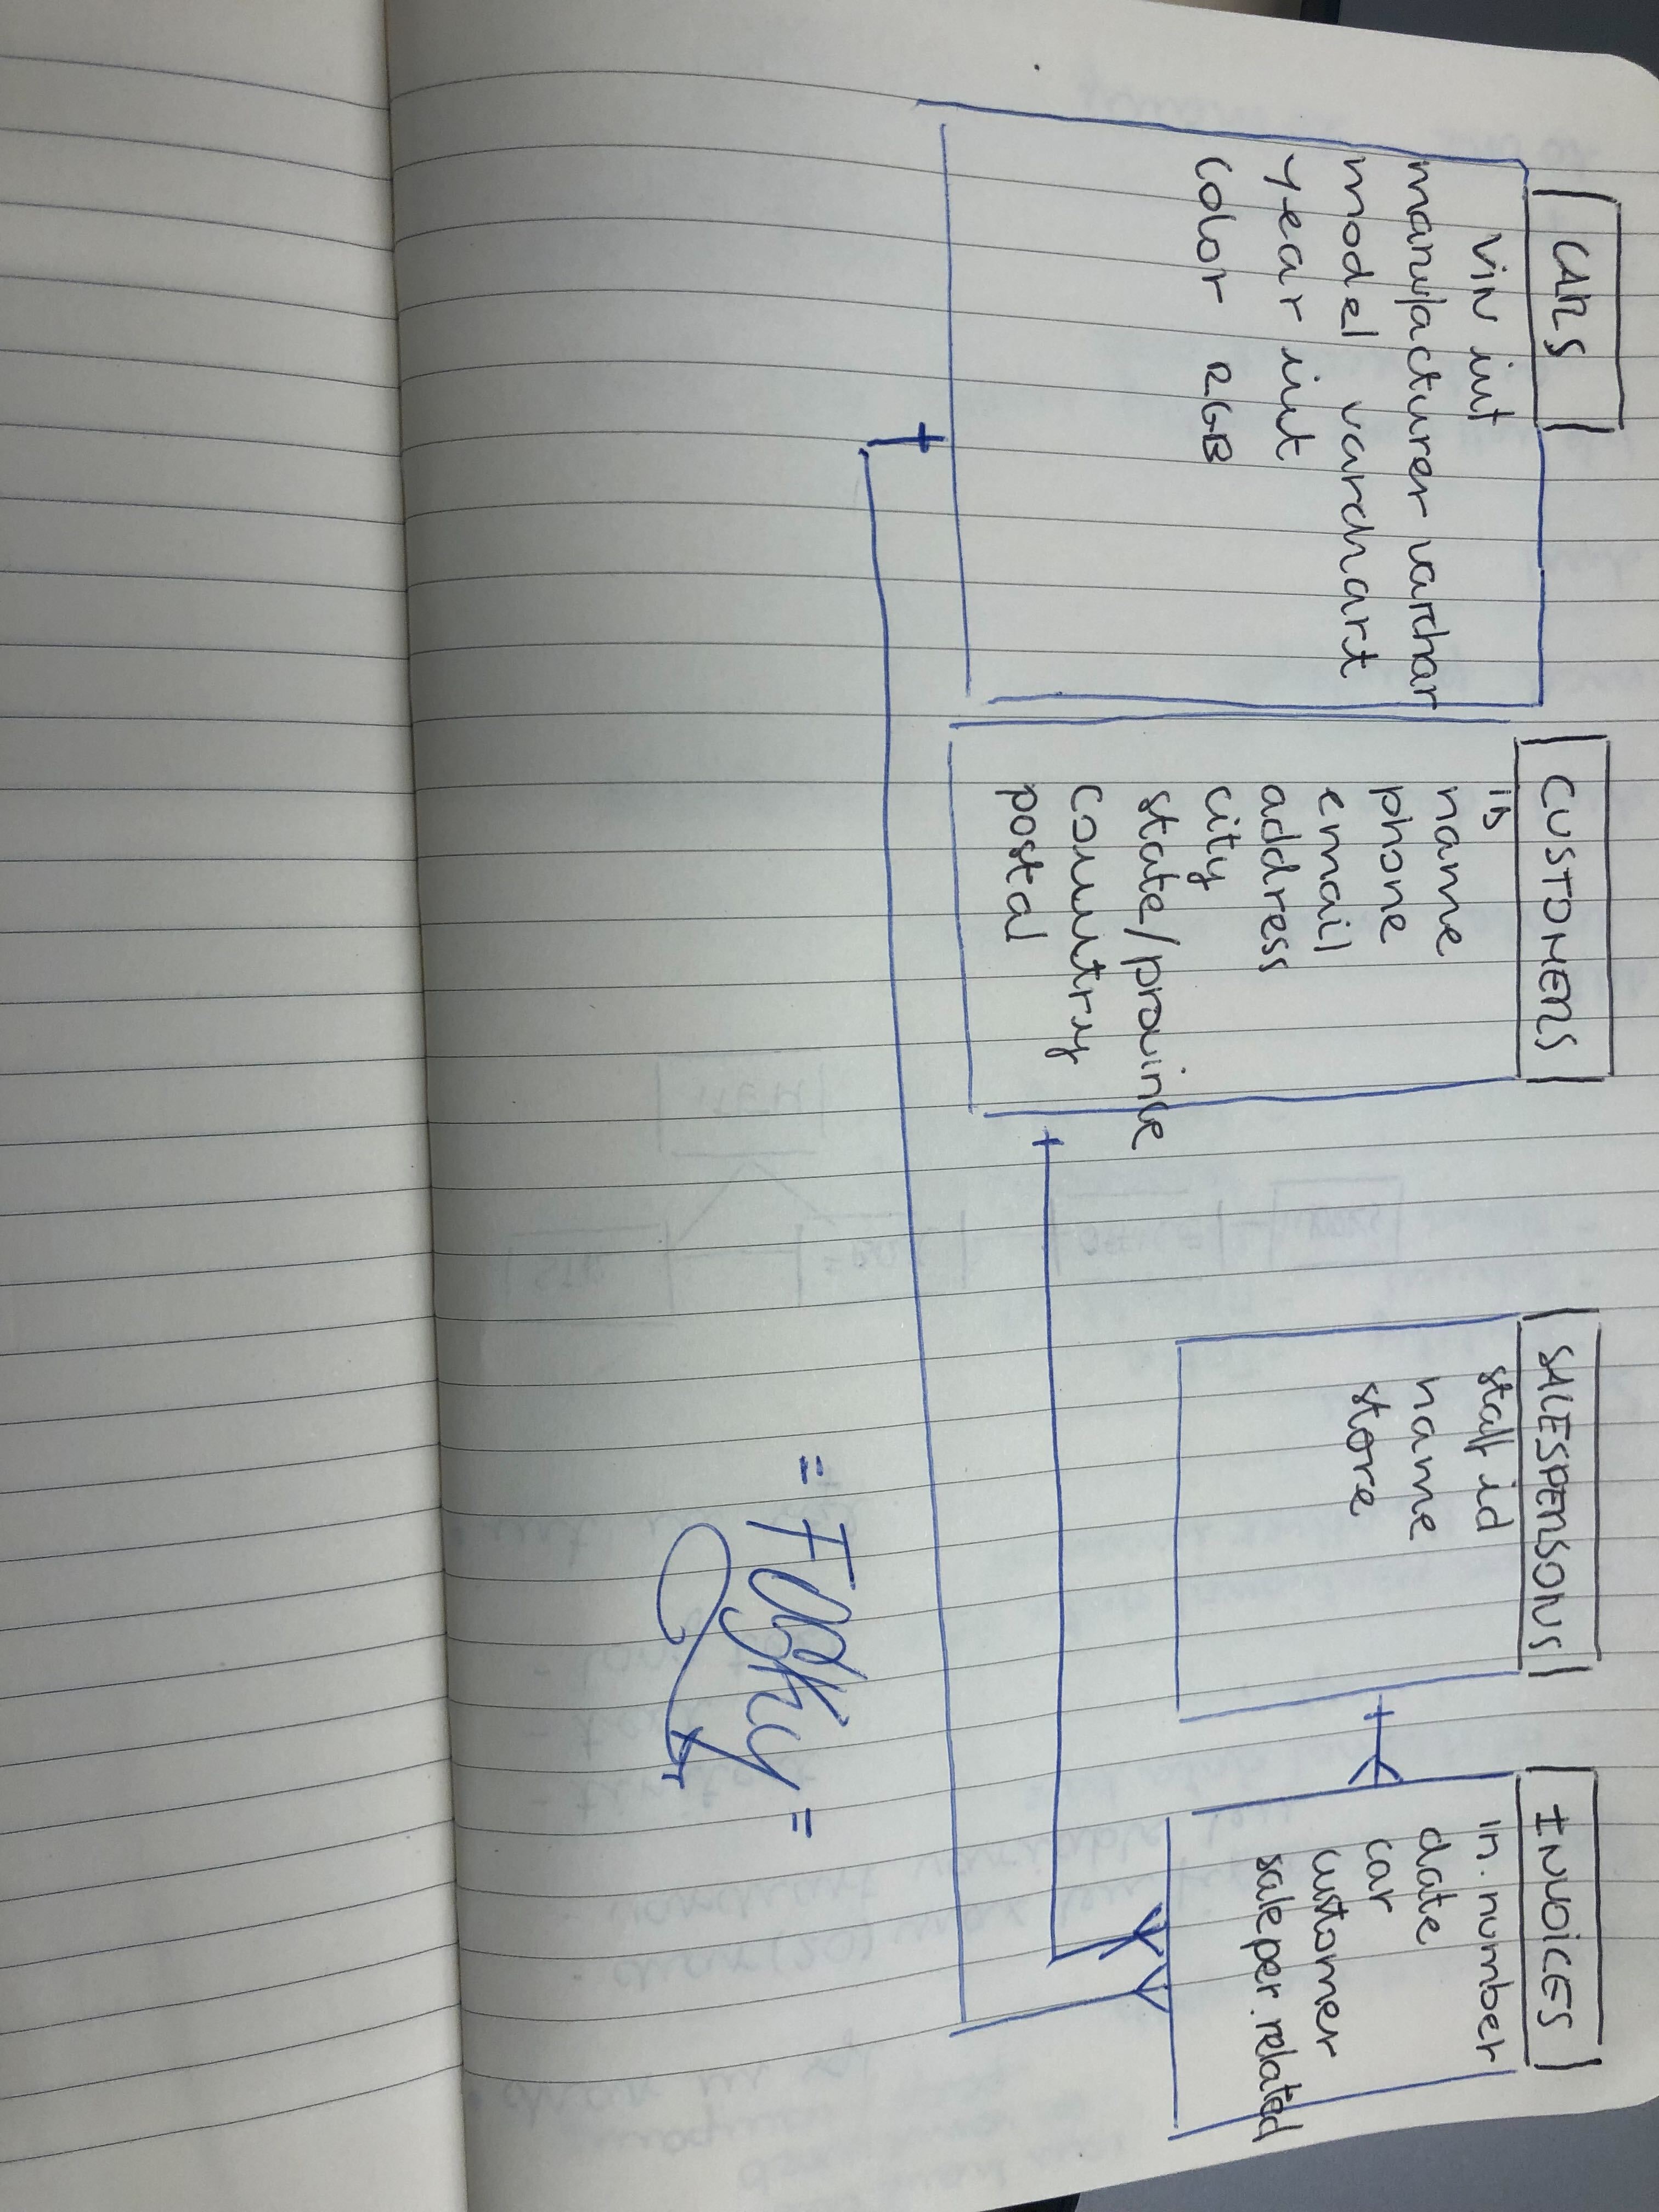 CARS
VIN int
manufacturer varchar
model varchart
year int
color RGB
CUSTOMERS
ID
name
phone
email
address
city
state/province
country
postal
SALESPERSONS
staff id
name
store
INVOICES
in. number
date
car
customer
saleper. related